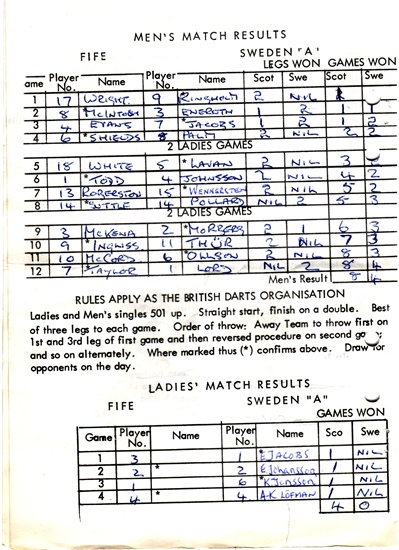 MEN'S MATCH RESULTS
FIFE SWEDEN "A"
LEGS WON GAMES WON
ame Player No. Name Player No. Name Scot Swe Scot Swe
1 17 WRIGHT 9 RINGHOLM 2 NIL 1
2 8 McINTOSH 3 ENEROTH 1 2 1 1
3 4 EVANS 7 *JACOBS 1 2 1 2
4 6 *SHIELDS 8 PALM 2 NIL 2 2
2 LADIES GAMES
5 18 WHITE 5 *LAVAN 2 NIL 3
6 1 *TODD 4 JOHNSSON 2 NIL 4 2
7 13 ROBERTSON 15 *WENNERSTEN 2 NIL 5 2
8 14 14 POLLARD NIL 2 5 3
2 LADIES GAMES
9 3 McKENA 2 2 1 6 3
10 9 *INGLISS 11 THÜR 2 NIL 7 3
11 10 McCORD 6 OLLSON 2 NIL 8 3
12 7 *TAYLOR 1 LORD NIL 2 8 4
Men's Result 8 4
RULES APPLY AS THE BRITISH DARTS ORGANISATION
Ladies and Men's singles 501 up. Straight start, finish on a double. Best
of three legs to each game. Order of throw: Away Team to throw first on
1st and 3rd leg of first game and then reversed procedure on second
and so on alternately. Where marked thus (*) confirms above. Draw for
opponents on the day.
LADIES' MATCH RESULTS
FIFE SWEDEN "A"
GAMES WON
Game Player No. Name Player No. Name Sco Swe
1 3 1 *E JACOBS 1 NIL
2 2 * 2 E Johansson 1 NIL
3 1 6 *K JONSSON 1 NIL
4 4 * 4 A-K LÖFMAN 1 NIL
4 0